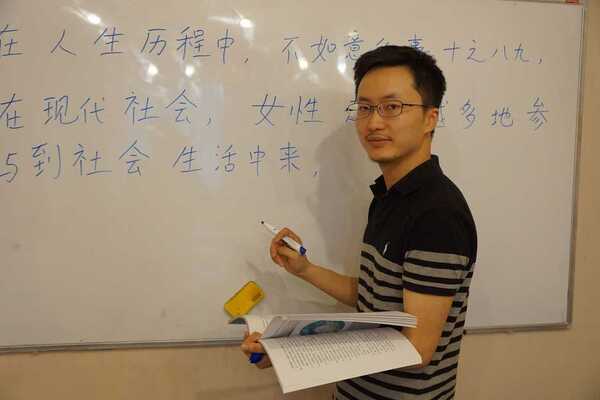 在人生历程中，不如意之事十之八九，
在现代社会，女性 越多地参
与到社会生活中来，